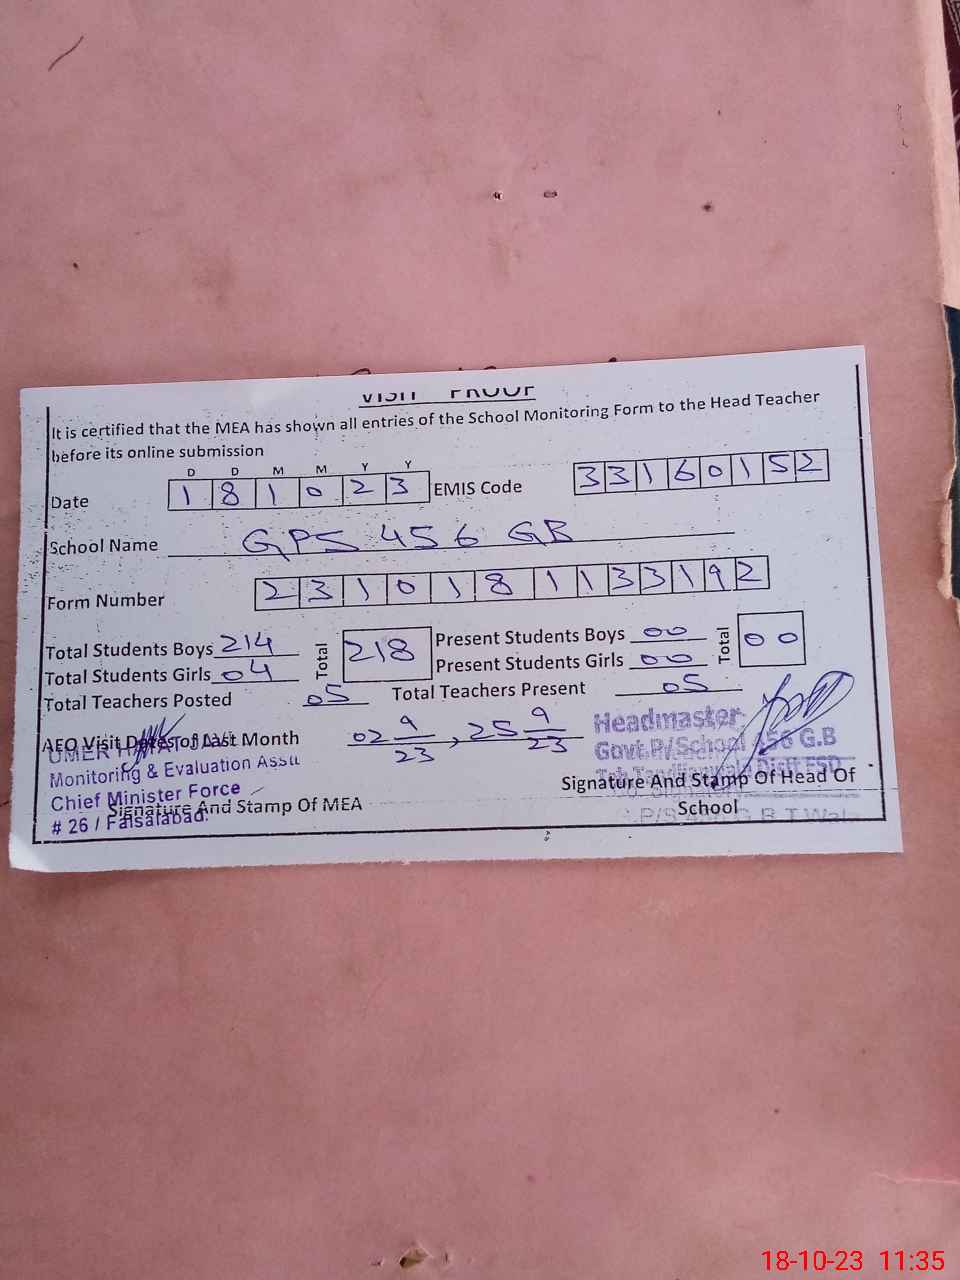 VISIT PROOF
It is certified that the MEA has shown all entries of the School Monitoring Form to the Head Teacher
before its online submission
D D M M Y Y
Date 1 8 1 0 2 3 EMIS Code 3 3 1 6 0 1 5 2
School Name GPS 456 GB
Form Number 2 3 1 0 1 8 1 1 3 3 1 9 2
Total Students Boys 214 Total 218 Present Students Boys 00 Total 00
Total Students Girls 04 Present Students Girls 00
Total Teachers Posted 05 Total Teachers Present 05
AEO Visit Dates of Last Month 02 9/23, 25 9/23
UMER
Monitoring & Evaluation Asstt
Chief Minister Force
# 26 / Faisalabad.
Signature And Stamp Of MEA
Headmaster
Govt.P/School 456 G.B
Signature And Stamp Of Head Of
School
18-10-23 11:35